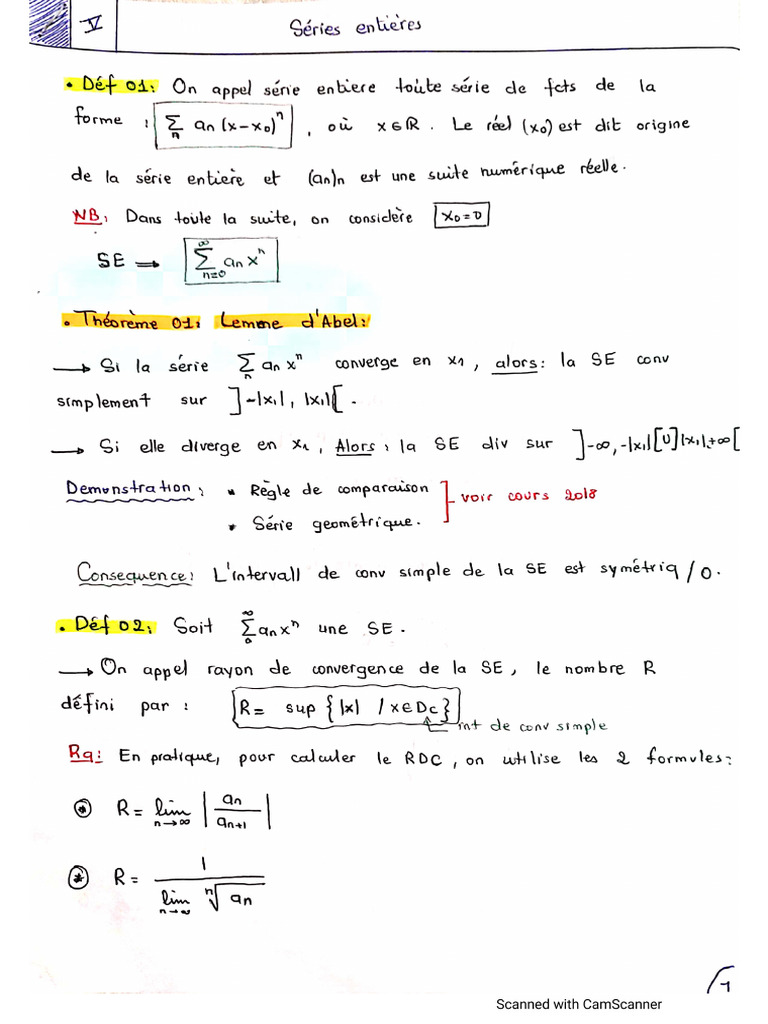 V Séries entières
• Déf 01: On appel série entiere toute série de fcts de la
forme : ∑_n an (x-x0)^n , où x∈ℝ. Le réel (x0) est dit origine
de la série entiere et (an)n est une suite numérique réelle.
NB: Dans toute la suite, on considère x0=0
SE → ∑_{n=0}^{∞} an x^n
• Théorème 01: Lemme d'Abel:
→ Si la série ∑_n an x^n converge en x1, alors: la SE conv
simplement sur ]-|x1|, |x1|[.
→ Si elle diverge en x1, Alors: la SE div sur ]-∞,-|x1|[U]|x1|,+∞[
Demonstration: * Règle de comparaison
* Série geométrique. ] voir cours 2018
Consequence: L'intervall de conv simple de la SE est symétriq /0.
• Déf 02: Soit ∑_0^∞ an x^n une SE.
→ On appel rayon de convergence de la SE, le nombre R
défini par : R= sup {|x| / x∈Dc}
int de conv simple
Rq: En pratique, pour calculer le RDC, on utilise les 2 formules:
⊛ R = lim_{n→∞} |an/an+1|
⊛ R = 1/(lim_{n→∞} ⁿ√an)
/1
Scanned with CamScanner